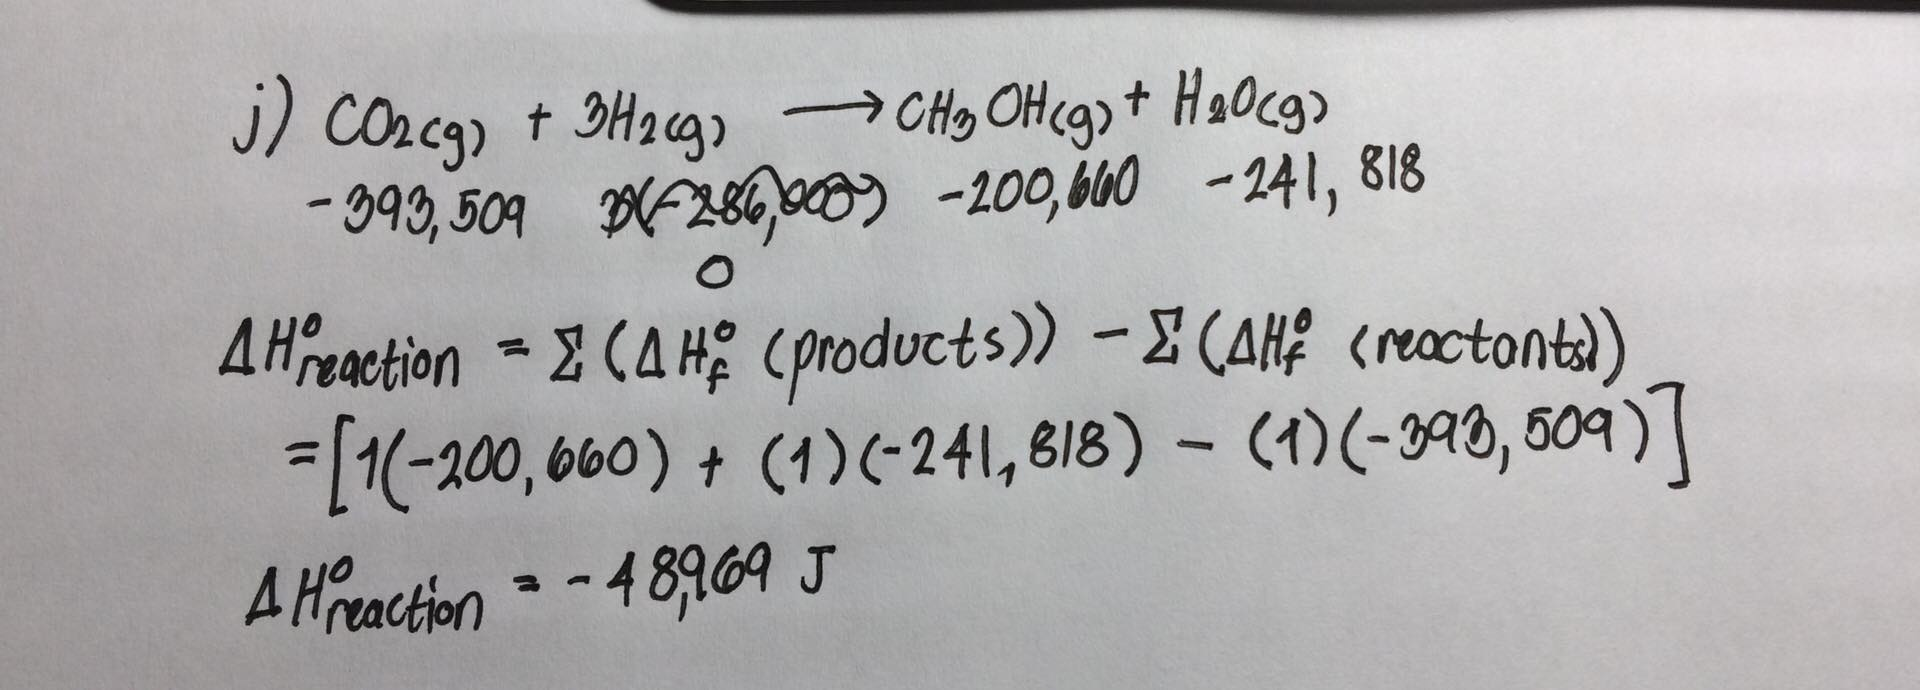 j) CO2(g) + 3H2(g) → CH3OH(g) + H2O(g)
-393,509 3(-286,000) -200,660 -241, 818
0
ΔH°reaction = Σ(ΔH°f (products)) - Σ(ΔH°f (reactants))
=[1(-200,660) + (1)(-241,818) - (1)(-393,509)]
ΔH°reaction = -48,969 J